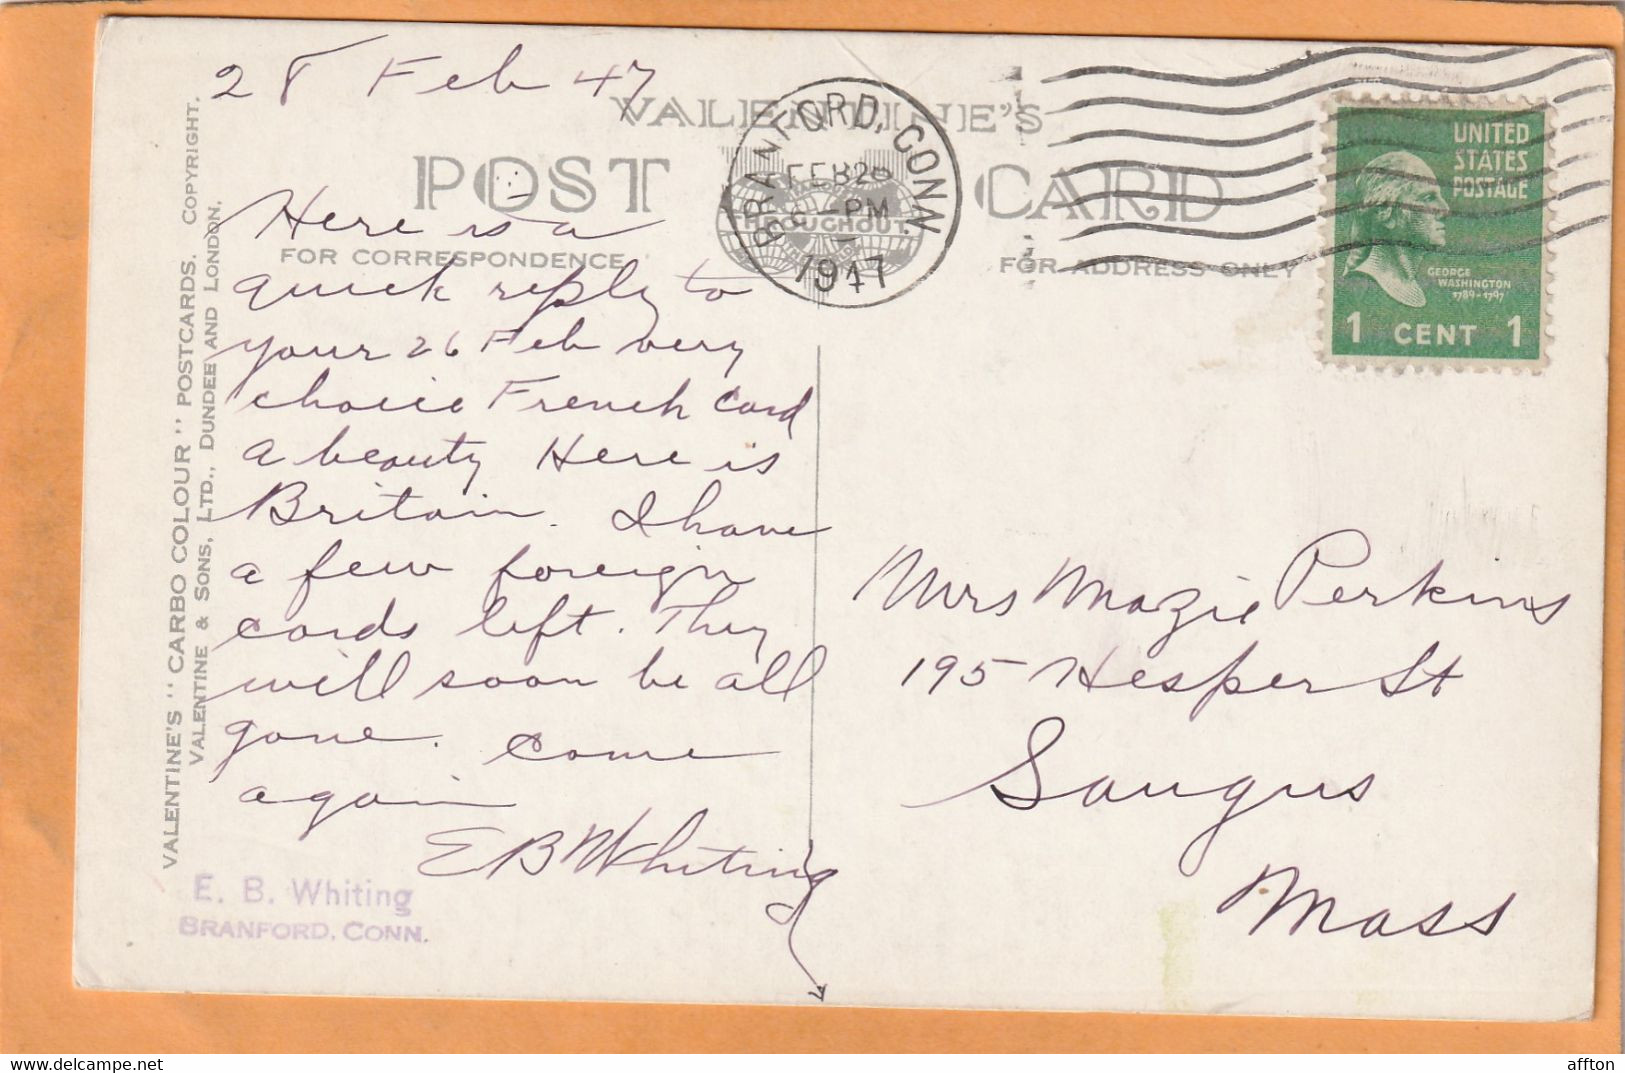 28 Feb 47
VALENTINE'S
POST CARD
FOR CORRESPONDENCE
FOR ADDRESS ONLY
BRANFORD, CONN.
FEB 28
PM
1947
UNITED
STATES
POSTAGE
GEORGE
WASHINGTON
1789-1797
1 CENT 1
Here is a
quick reply to
your 26 Feb very
choice French card
a beauty Here is
Britain. I have
a few foreign
cards left. They
will soon be all
gone. Come
again
E B Whiting
E. B. Whiting
BRANFORD, CONN.
Mrs Mazie Perkins
195 Hesper St
Saugus
Mass
VALENTINE'S "CARBO COLOUR" POSTCARDS. COPYRIGHT.
VALENTINE & SONS, LTD., DUNDEE AND LONDON.
affton